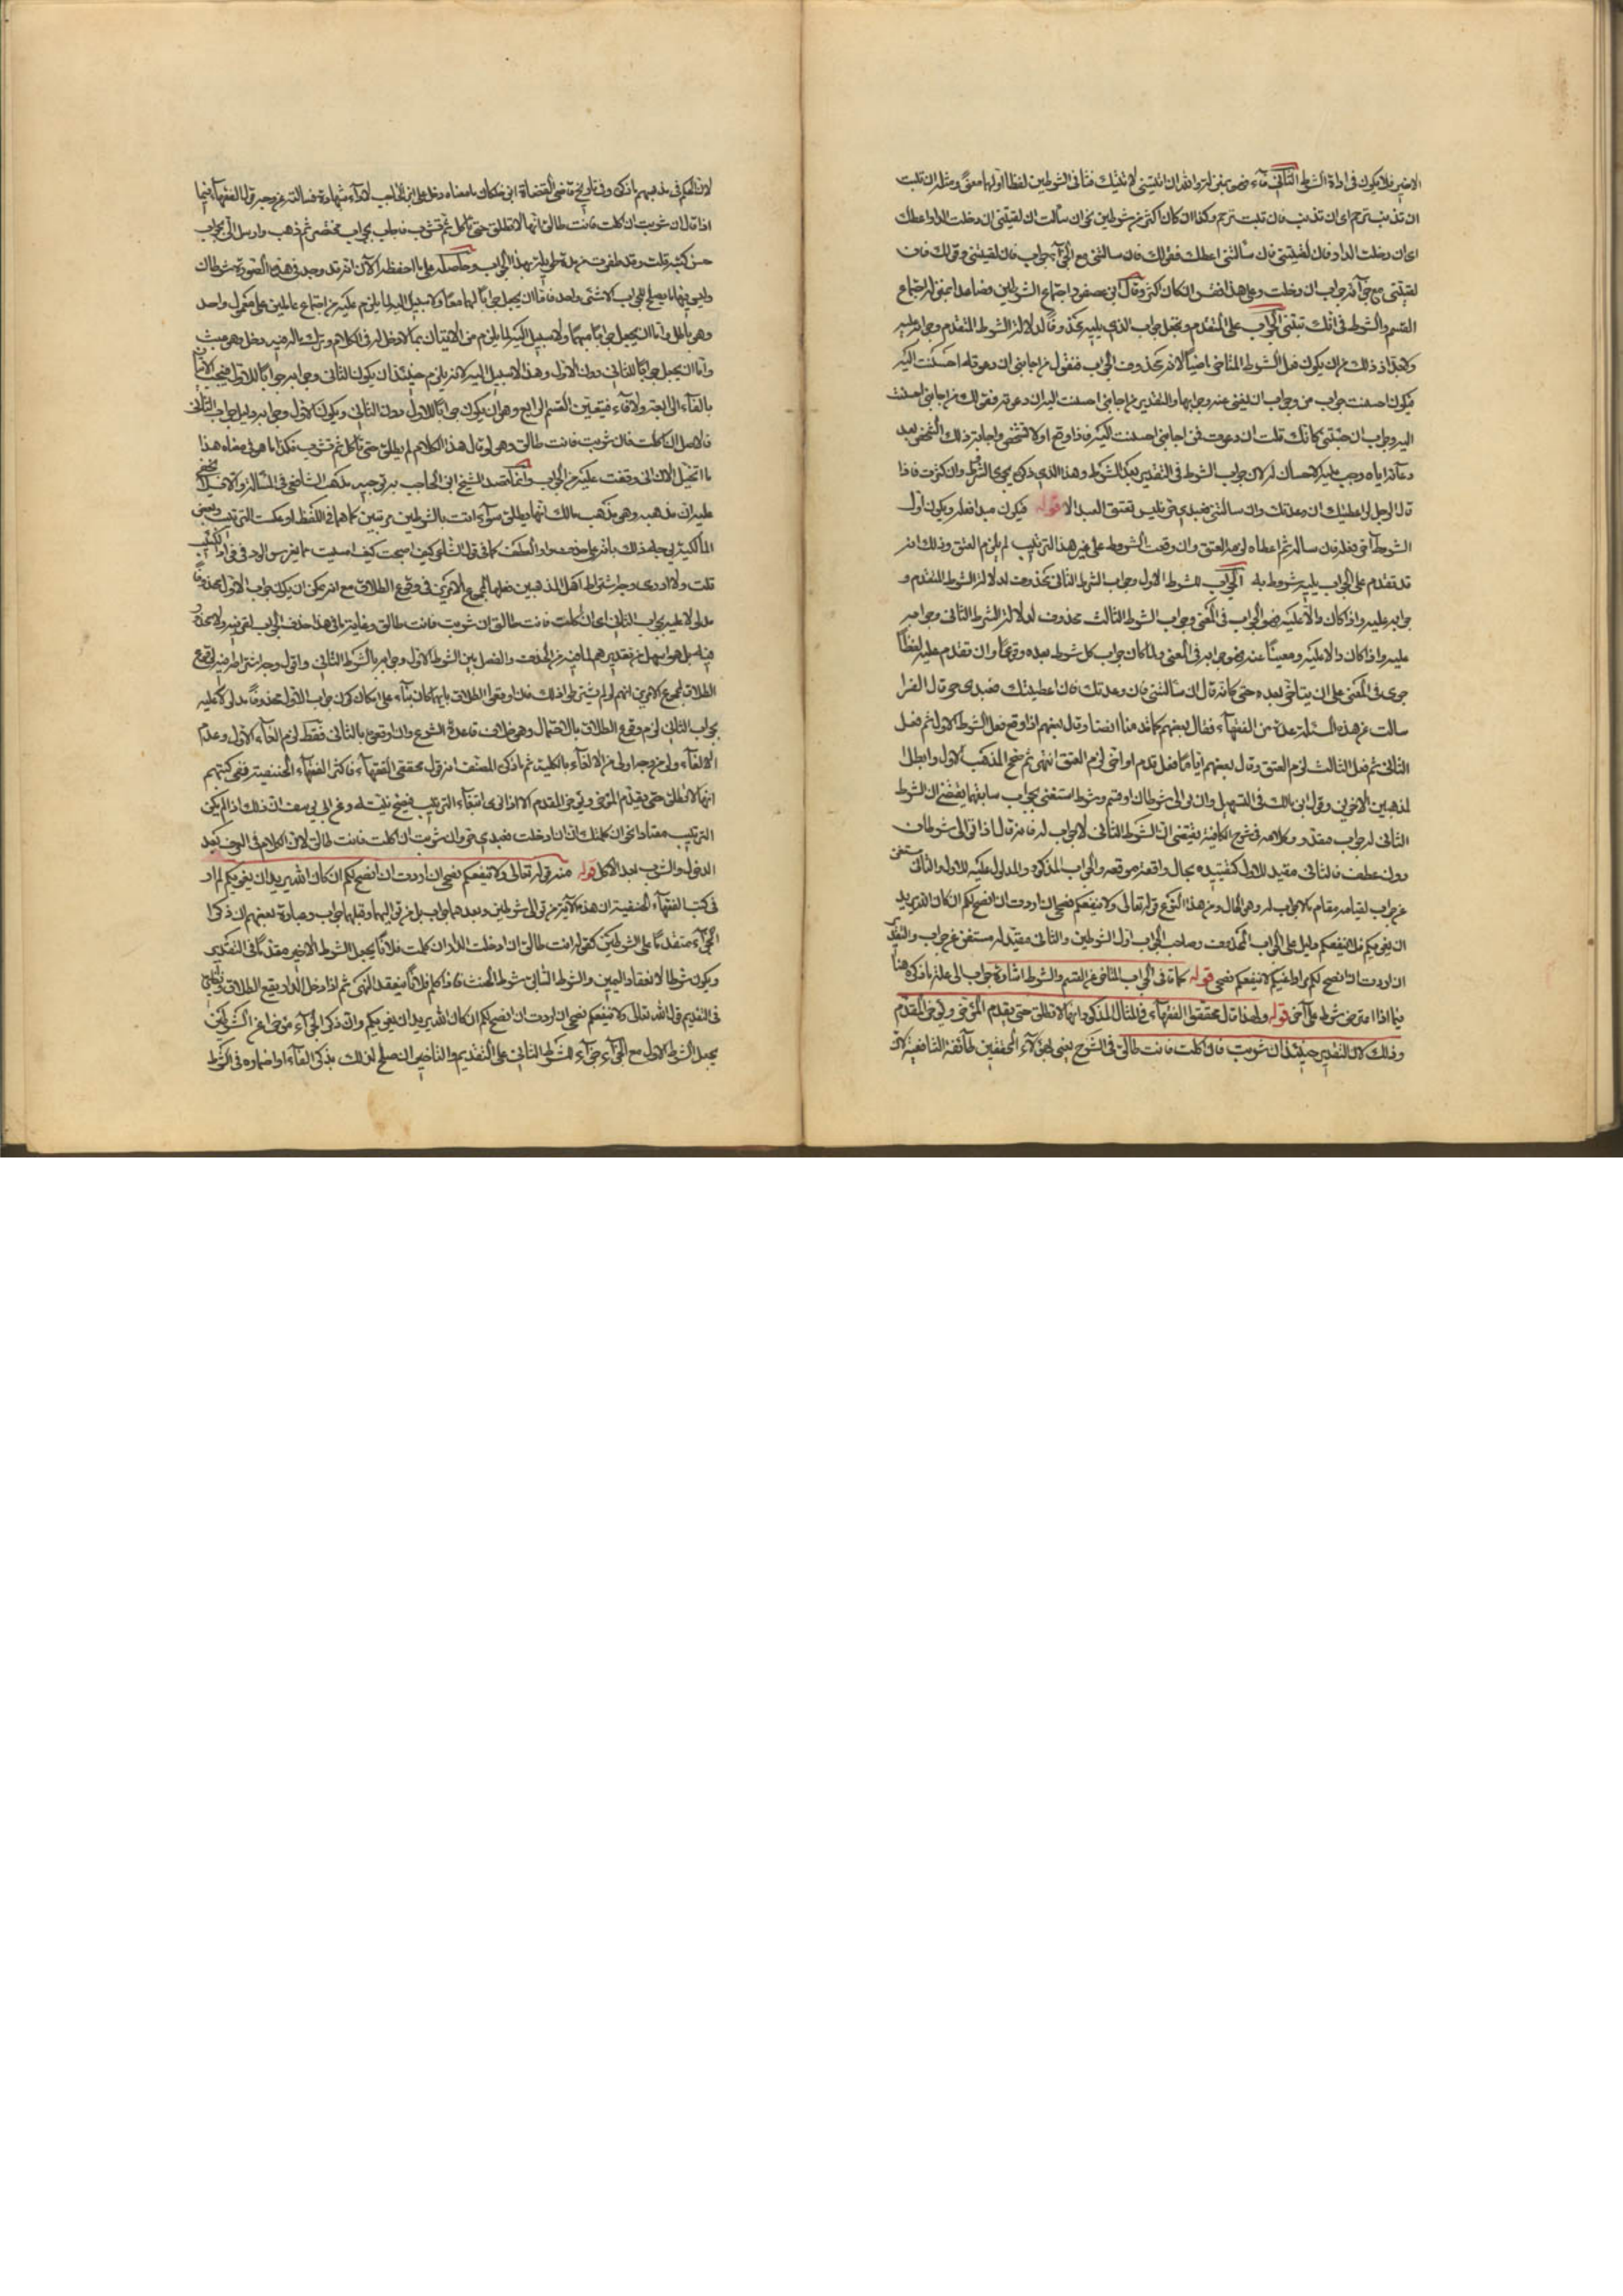 الاخير فلا يكون في اداة الشرط الثاني فاء نحو
ان تذنب ترحم اي ان تذنب فان تبت ترحم وكذا ان كان اكثر من شرطين نحو ان سألت ان لقيتني ان دخلت الدار اعطك
اي ان دخلت الدار فان لقيتني فان سألتني اعطك فقولك فان سألتني مع الجزاء جواب فان لقيتني وقولك فان
لقيتني مع جزائه جواب ان دخلت وعلى هذا فقس ان كان اكثر وقال ابن عصفور اجتماع الشرطين فصاعدا بمنزلة اجتماع
القسم والشرط في انك تبقي الجواب على المتقدم وتجعل جواب الذي يليه محذوفا لدلالة الشرط المتقدم وجوابه عليه
ولا بد اذ ذاك من ان يكون فعل الشرط المتأخر ماضيا لانه محذوف الجواب فنقول من اجابني ان دعوته احسنت اليه
فيكون احسنت جواب من وجواب ان يغني عنه من وجوابها والتقدير من اجابني احسنت اليه ان دعوته فقولك من اجابني احسنت
اليه جواب ان
دعائه اياه وجب عليه الاحسان له لان جواب الشرط في التقدير بعد الشرط وهذا الذي ذكر مجرى الشرط وان كثرت فاذا
قال الرجل ان اعطيتك ان وعدتك وان سألتني فعبدي حر فليس يعتق العبد الا قوله فيكون مبدأ فعله ويكون اول
الشرط
قد تقدم على الجواب الجواب للشرط الاول وجواب الشرط الثاني محذوف لدلالة الشرط المتقدم و
جوابه عليه واذا كان دالا عليه فهو الجواب في المعنى وجواب الشرط الثالث محذوف لدلالة الشرط الثاني وجوابه
عليه واذا كان دالا عليه ومغنيا عنه فهو جوابه في المعنى ولما كان جواب كل شرط بعده وقوعا وان تقدم عليه لفظا
جرى في المعنى على ان يتأخر بعده حتى كانه قال ان سألتني فان وعدتك فان اعطيتك فعبدي حر قال الفرا
سألت عن هذه المسئلة عدة من الفقهاء فقال بعضهم وقال بعضهم اذا وقع فعل الشرط الاول ثم فعل
الثاني ثم فعل الثالث لزم العتق وقال بعضهم ايما فعل تقدم او اخر لزم العتق انتهى ثم صحح المذهب الاول وابطل ال
لمذهبين الاخرين وقول ابن مالك في التسهيل وان توالى شرطان او قسم وشرط استغنى بجواب سابقهما يقتضي ان الشرط
الثاني له جواب مقدر وكلامه في شرح الكافية يقتضي ان الشرط الثاني لا جواب له فانه قال اذا توالى شرطان
دون عطف فالثاني مقيد للاول كتقييده بحال واقعة موقعه والجواب المذكور والمدلول عليه للاول والثاني مستغن
عن جواب لقيامه مقام ما لا جواب له وهو الحال ومن هذا النوع قوله تعالى ولا ينفعكم نصحي ان اردت ان انصح لكم ان كان الله يريد
ان يغويكم فلا ينفعكم دليل على الجواب المحذوف وصاحب الجواب اول الشرطين والثاني مقيد له مستغن عن جواب والتقدير
ان اردت ان انصح لكم مرادا غيكم لا ينفعكم نصحي قوله كما في الجواب المتأخر عن القسم والشرط اشارة بجواب الى علة ما ذكره هنا
فيما اذا اعترض شرط على آخر قوله ولهذا قال محققوا الفقهاء في المثال المذكور انها لا تطلق حتى يقدم المؤخر ويؤخر المقدم
وذلك لان التقدير حينئذ ان شربت فان اكلت فانت طالق في الشرح يعني بهؤلاء المحققين طائفة الشافعية لان
لان الحكم في مذهبهم ما ذكره وفي تاريخ قاضي القضاة ابن خلكان ما معناه دخل علي ابن الحاجب لاداء شهادة فسألته عن وجه قول الفقهاء فيما
اذا قال ان شربت ان اكلت فانت طالق انها لا تطلق حتى تأكل ثم تشرب فاجاب بجواب مختصر ثم ذهب وارسل الي بجواب
حسن كتبه قلت وقد ظفرت وحاصله على ما احفظه الآن انه قد وجد في هذه الصورة شرطان
وليس فيهما ما يصلح للجواب الا شيء واحد فاما ان يجعل جوابا لهما معا ولا سبيل اليه لما يلزم عليه من اجتماع عاملين على معمول واحد
وهو باطل واما ان لا يجعل جوابا لهما ولا سبيل اليه لما يلزم من الاتيان بما لا دخل له في الكلام وترك ما له فيه دخل وهو عبث
واما ان يجعل جوابا للثاني دون الاول وهذا لا سبيل اليه لانه يلزم حينئذ ان يكون الثاني وجوابه جوابا للاول فيجب الاتيان
بالفاء الرابطة ولا فاء فيتعين القسم الرابع وهو ان يكون جوابا للاول دون الثاني ويكون الاول وجوابه دليل جواب الثاني
فالاصل ان اكلت فان شربت فانت طالق وهو لو قال هذا الكلام لم يطلق حتى تأكل ثم تشرب فكذا ما هو في معناه هذا
ما اتخيل الآن اني وقفت عليه من الجواب وانما قصد الشيخ ابن الحاجب به توجيه مذهب الشافعي في المسألة ولا
عليه ان مذهبه وهو مذهب مالك انها تطلق سواء اتت بالشرطين مرتبين كما هما في اللفظ او عكست الترتيب وبعض
المالكية يوجه ذلك بانه على حذف واو العطف كما في قول الشاعر كيف اصبحت كيف امسيت مما يغرس الود في فؤاد اللبيب
قلت ولا ادري وجه اشتراط اهل المذهبين فعلها لمجموع الامرين في وقوع الطلاق مع انه يمكن ان يكون جواب الاول محذوفا
مدلولا عليه بجواب الثاني اي ان اكلت فانت طالق ان شربت فانت طالق وغاية ما في هذا حذف الجواب لقرينة ولا محذور
فيه بل هو اسهل من تقديرهم لما فيه من الحذف والفصل بين الشرط الاول وجوابه بالشرط الثاني واقول وجه اشتراطه في وقوع
الطلاق مجموع الامرين انهم لو لم يشترطوا ذلك فلو اوقعوا الطلاق بايهما كان بناء على امكان كون جواب الاول محذوفا مدلولا عليه
بجواب الثاني لزم وقوع الطلاق بالاحتمال وهو خلاف قاعدة الشرع وان اوقعوه بالثاني فقط لزم الغاء الاول وعدم
الالغاء ولو من وجه اولى من الالغاء بالكلية ثم ما ذكره المصنف انه قول محققي الفقهاء فاكثر الفقهاء الحنفية ففي كتبهم
انها لا تطلق حتى يقدم المؤخر ويؤخر المقدم الا اذا نوى ابقاء الترتيب فيصح نيته وعن ابي يوسف ان ذلك اذا لم يكن
الترتيب معتادا نحو ان كلمتك ان دخلت فعبدي حر وان شربت ان اكلت فانت طالق لان الكلام في العرف بعد
الدخول والشرب بعد الاكل قوله منه قوله تعالى ولا ينفعكم نصحي ان اردت ان انصح لكم ان كان الله يريد ان يغويكم لم ار
في كتب الفقهاء الحنفية ان هذه الآية من توالي شرطين وبعدهما جواب بل من تواليهما وقبلهما جواب وعبارة بعضهم ان ذكر ا
الجزاء متقدما على الشرطين كقوله انت طالق ان دخلت الدار ان كلمت فلانا يجعل الشرط الاخير مقدما في التقدير
ويكون شرطا لانعقاد اليمين والشرط الثاني شرط الحنث فاذا كلم فلانا ينعقد اليمين ثم اذا دخل الدار يقع الطلاق ونظيره
في التقديم قول الله تعالى ولا ينفعكم نصحي ان اردت ان انصح لكم ان كان الله يريد ان يغويكم وان ذكر الجزاء مؤخرا عن الشرطين
يجعل الشرط الاول مع الجزاء جزاء للشرط الثاني على التقديم والتأخير ان صلح لذلك بذكر الفاء او اضماره في الشرط